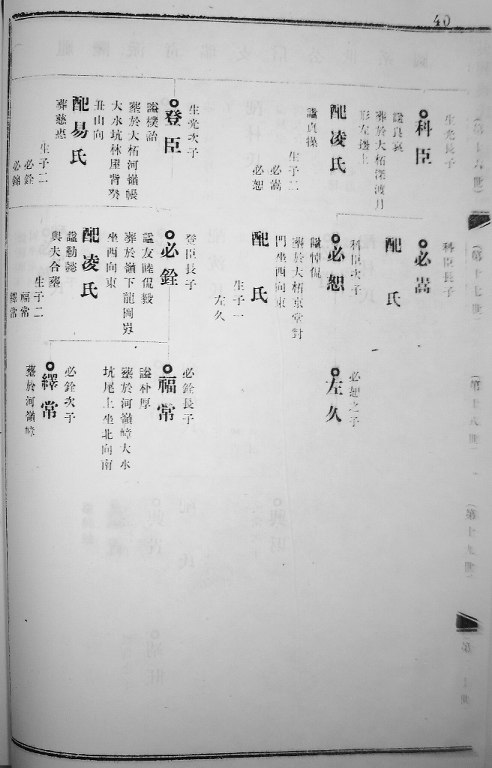 40
(第十六世)
生光長子
科臣
諡良哀
葬於大柘深渡月
形左邊上
配凌氏
諡貞操
生子二
必嵩
必恕
生光次子
登臣
諡樸諂
葬於大柘河嶺帳
大水坑林屋背癸
丑山向
配易氏
葬慈悲
生子二
必銓
必錦
(第十七世)
科臣長子
必嵩
配 氏
科臣次子
必恕
諡悼侃
葬於大柘京堂對
門坐西向東
配 氏
生子一
左久
登臣長子
必銓
諡友睦侃毅
葬於嶺下龍岡崀
坐西向東
配凌氏
諡勤懿
與夫合葬
生子二
福常
繹常
(第十八世)
必恕之子
左久
必銓長子
福常
諡朴厚
葬於河嶺嶂大水
坑尾上坐北向南
必銓次子
繹常
葬於河嶺嶂
(第十九世)